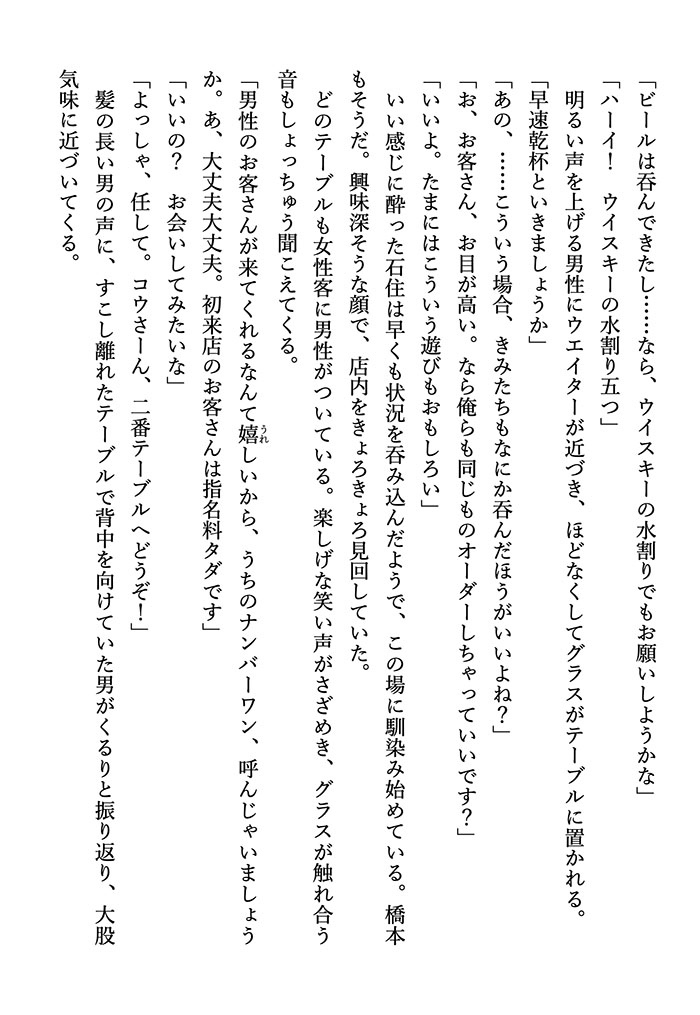 「ビールは呑んできたし……なら、ウイスキーの水割りでもお願いしようかな」
「ハーイ！　ウイスキーの水割り五つ」
　明るい声を上げる男性にウエイターが近づき、ほどなくしてグラスがテーブルに置かれる。
「早速乾杯といきましょうか」
「あの、……こういう場合、きみたちもなにか呑んだほうがいいよね？」
「お、お客さん、お目が高い。なら俺らも同じものオーダーしちゃっていいです？」
「いいよ。たまにはこういう遊びもおもしろい」
　いい感じに酔った石住は早くも状況を呑み込んだようで、この場に馴染み始めている。橋本
もそうだ。興味深そうな顔で、店内をきょろきょろ見回していた。
　どのテーブルも女性客に男性がついている。楽しげな笑い声がさざめき、グラスが触れ合う
音もしょっちゅう聞こえてくる。
「男性のお客さんが来てくれるなんて嬉うれしいから、うちのナンバーワン、呼んじゃいましょう
か。あ、大丈夫大丈夫。初来店のお客さんは指名料タダです」
「いいの？　お会いしてみたいな」
「よっしゃ、任して。コウさーん、二番テーブルへどうぞ！」
　髪の長い男の声に、すこし離れたテーブルで背中を向けていた男がくるりと振り返り、大股
気味に近づいてくる。